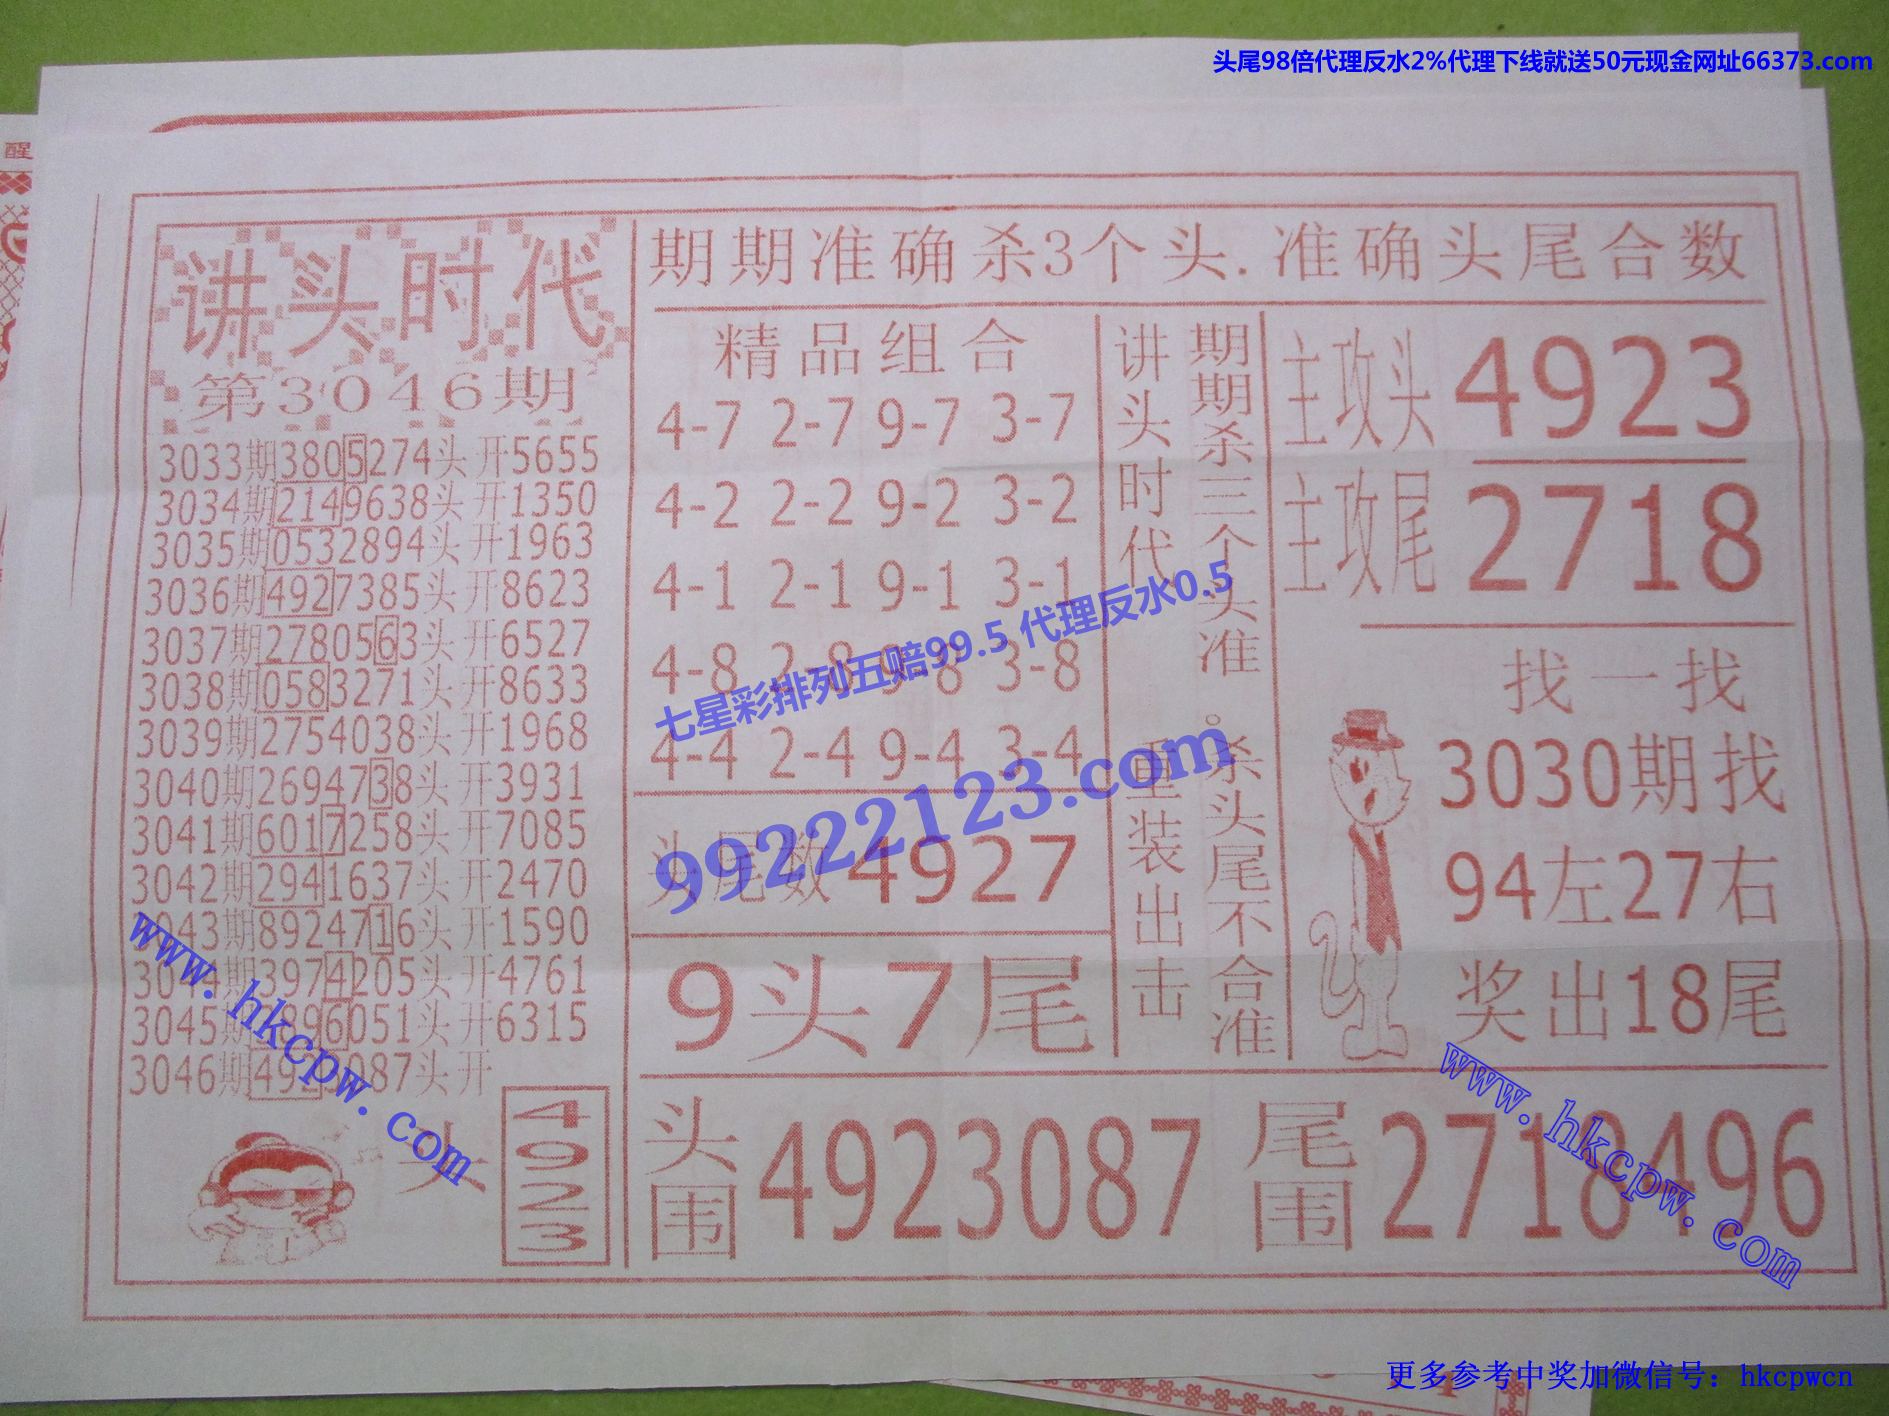 头尾98倍代理反水2%代理下线就送50元现金网址66373.com
醒
讲头时代
第3046期
3033期3805274头开5655
3034期2149638头开1350
3035期0532894头开1963
3036期4927385头开8623
3037期2780563头开6527
3038期0583271头开8633
3039期2754038头开1968
3040期2694738头开3931
3041期6017258头开7085
3042期2941637头开2470
3043期8924716头开1590
3044期3974205头开4761
3045期896051头开6315
3046期4923087头开
头
4923
期期准确杀3个头.准确头尾合数
精品组合
4-7 2-7 9-7 3-7
4-2 2-2 9-2 3-2
4-1 2-1 9-1 3-1
4-8 2-8 9-8 3-8
4-4 2-4 9-4 3-4
头尾数4927
9头7尾
讲头时代 重装出击
期期杀三个头准。杀头尾不合准
主攻头 4923
主攻尾 2718
找一找
3030期找
94左27右
奖出18尾
头围 4923087 尾围 2718496
七星彩排列五赔99.5 代理反水0.5
99222123.com
www.hkcpw.com
www.hkcpw.com
更多参考中奖加微信号：hkcpwcn